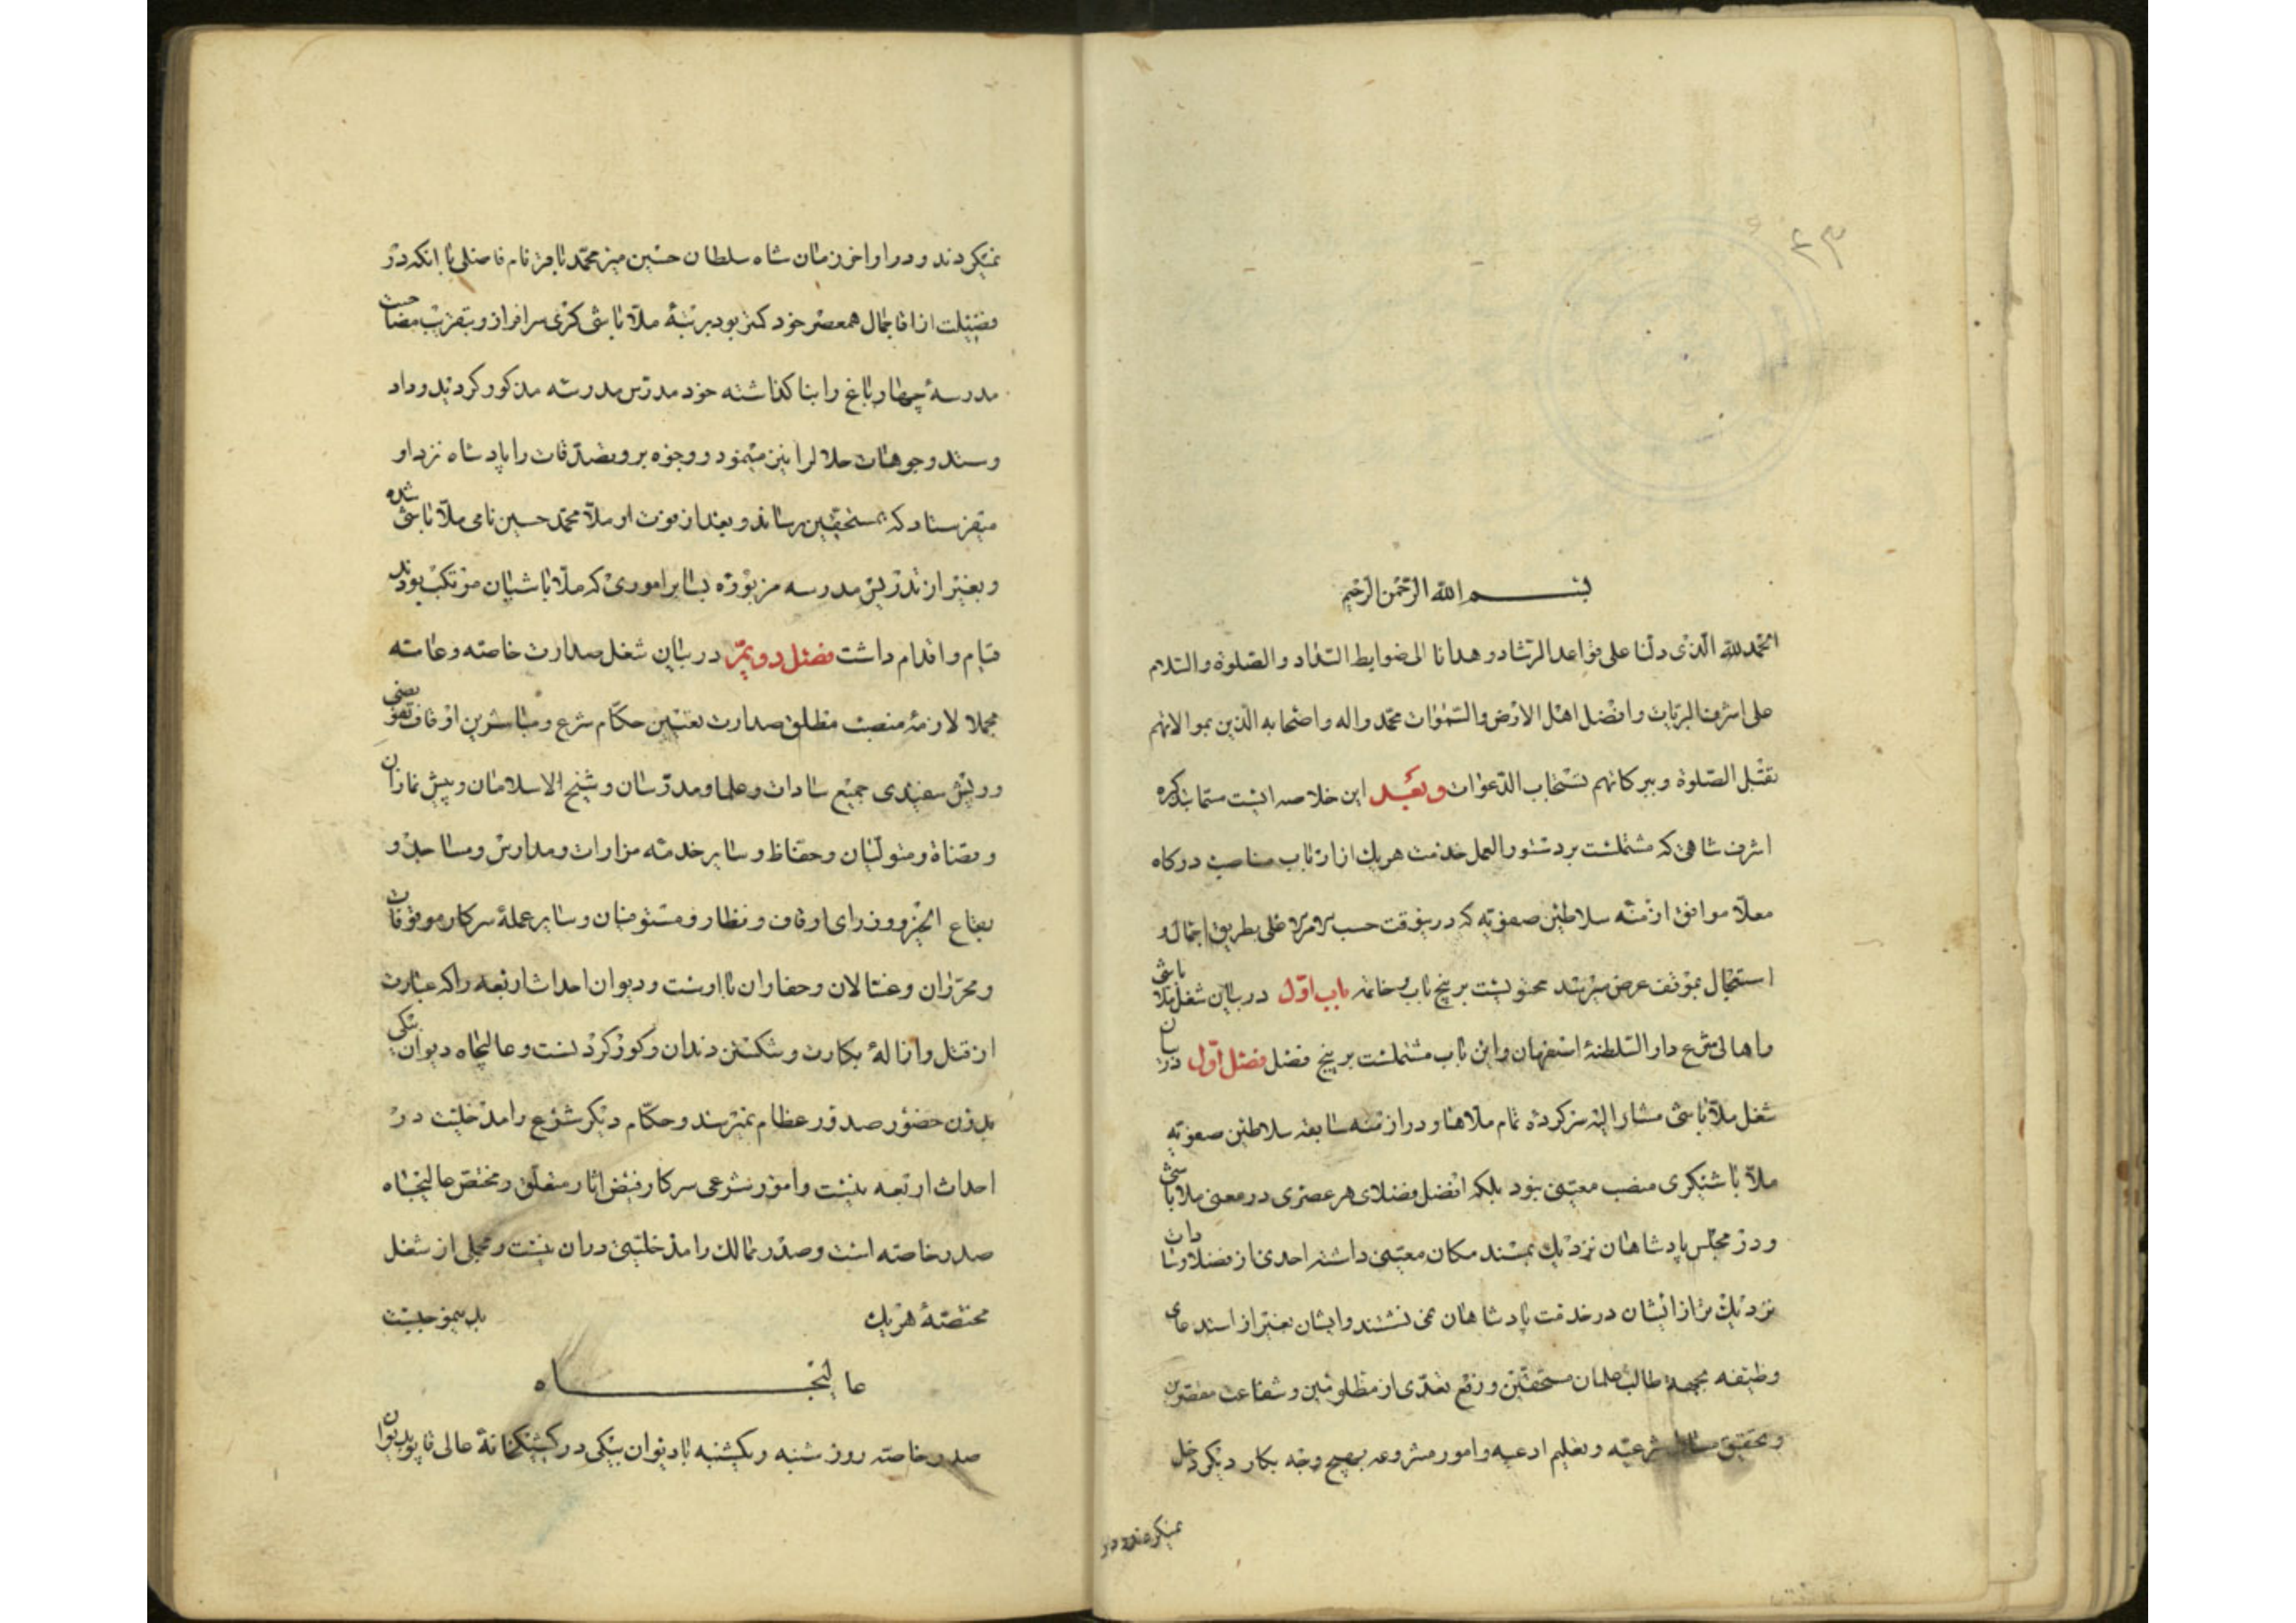 ۴۳
بسم الله الرحمن الرحیم
الحمد لله الذی دلنا علی قواعد الرشاد و هدانا الی ضوابط السداد والصلوة والسلام
علی اشرف البریات وافضل اهل الارض والسموات محمد واله واصحابه الذین بموالاتهم
تقبل الصلوة وببرکاتهم تستجاب الدعوات وبعد این خلاصه ایست مسما بتذکره
اشرف شاهی که مشتملست بر دستورالعمل خدمت هریك از ارباب مناصب درکاه
معلا موافق ازمنه سلاطین صفویه که درینوقت حسب الامر الاعلی بطریق اجمال و
استعجال بموقف عرض میرسد محتویست بر پنج باب وخاتمه باب اول در بیان شغل ملا باشی
واهالی شرع دار السلطنهٔ اصفهان واین باب مشتملست بر پنج فصل فصل اول در بیان
شغل ملا باشی مشار الیه سرکرده تمام ملاها و در ازمنه سابقه سلاطین صفویه
ملا باشیکری منصب معینی نبود بلکه افضل فضلای هر عصری در معنی ملاباشی
ودر مجلس پادشاهان نزدیك بمسند مکان معینی داشته احدی از فضلا وسادات
نزدیك تر از ایشان در خدمت پادشاهان نمی نشستند وایشان بغیر از استدعای
وظیفه بجهة طالب علمان مستحقین و رفع تعدی از مظلومین و شفاعت مقصرین
وتحقیق مسائل شرعیه وتعلیم ادعیه وامور مشروعه بهیچ وجه بکار دیکر دخل
نمیکردند ودر
نمیکردند و در اواخر زمان شاه سلطان حسین میر محمد باقر نام فاضلی با انکه در
فضیلت از اقا جمال همعصر خود کمتر بود برتبهٔ ملا باشی کری سرافراز و بتقرب مصاحبت
مدرسهٔ چهار باغ را بنا کذاشته خود مدرس مدرسه مذکور کردید و داد
وستد وجوهات حلال را نیز مینمود و وجوه بر وتصدقات را پادشاه نزد او
میفرستاد که بمستحقین رساند و بعد از فوت او ملا محمد حسین نامی ملا باشی شده
وبغیر از تدریس مدرسه مزبوره بسایر اموری که ملا باشیان مرتکب بودند
قیام واقدام داشت فصل دویم در بیان شغل صدارت خاصه وعامه
مجملا لازمهٔ منصب مطلق صدارت تعیین حکام شرع ومباشرین اوقاف تفویضی
وریش سفیدی جمیع سادات وعلما ومدرسان وشیخ الاسلامان وپیش نمازان
وقضاة ومتولیان وحفاظ وسایر خدمه مزارات ومدارس ومساجد و
بقاع الخیر ووزرای اوقاف ونظار ومستوفیان وسایر عملهٔ سرکار موقوفات
ومحرران وغسالان وحفاران با اوست ودیوان احداث اربعه را که عبارت
از قتل وازالهٔ بکارت وشکستن دندان وکور کردنست وعالیجاه دیوان بیکی
بدون حضور صدور عظام نمیرسد وحکام دیکر شرع را مدخلیت در
احداث اربعه نیست وامور شرعی سرکار فیض اثار متعلق ومختص عالیجاه
صدر خاصه است وصدر ممالك را مدخلیتی دران نیست ومجملی از شغل
مختصهٔ هریك بدینموجبست
عالیجاه
صدر خاصه روز شنبه ویکشنبه با دیوان بیکی در کشیکخانهٔ عالی قاپو بدیوان